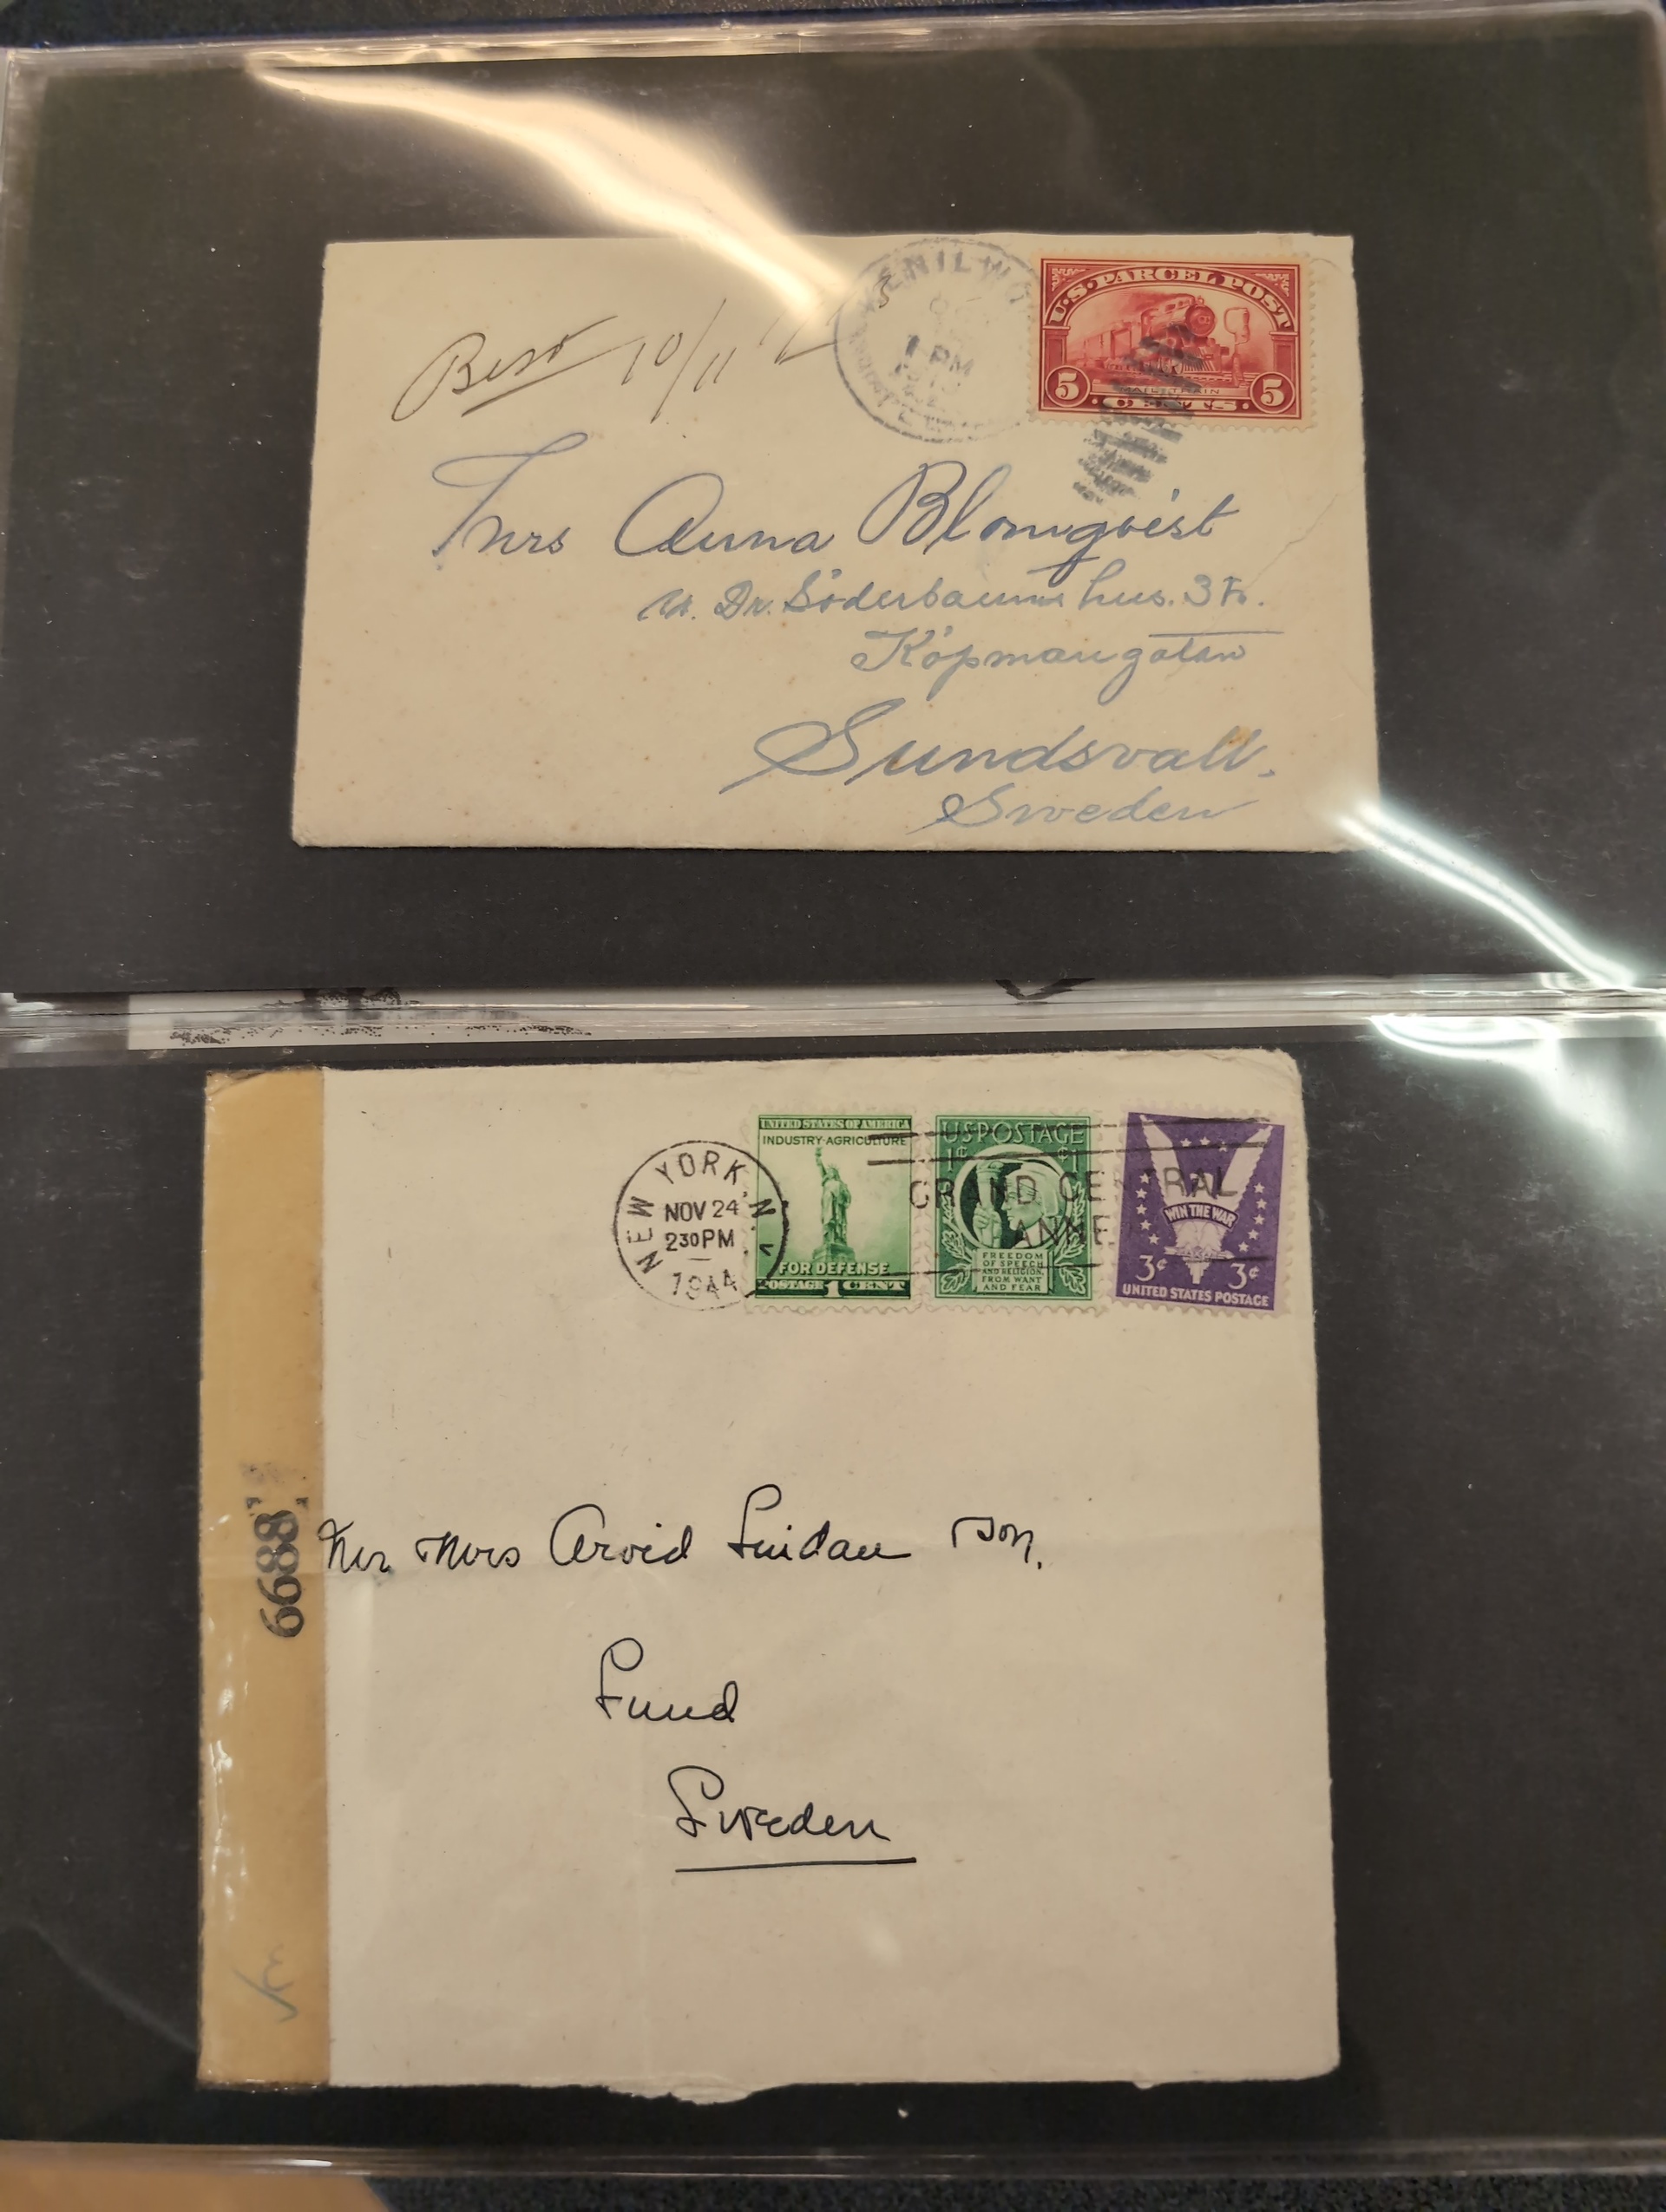 Best 10/11
KENILWO
1 PM
U.S. PARCEL POST
5 MAIL TRAIN 5
CENTS
Mrs Anna Blomqvist
Dr. Söderbaums hus. 3 tr.
Köpmangatan
Sundsvall.
Sweden
NEW YORK, N.
NOV 24
230PM
1944
UNITED STATES OF AMERICA
INDUSTRY·AGRICULTURE
FOR DEFENSE
POSTAGE 1 CENT
US POSTAGE
1¢ ¢1
FREEDOM
OF SPEECH
AND RELIGION,
FROM WANT
AND FEAR
GRAND CENTRAL
ANNE
WIN THE WAR
3¢ 3¢
UNITED STATES POSTAGE
6688
Mr Mrs Arvid
Lund
Sweden